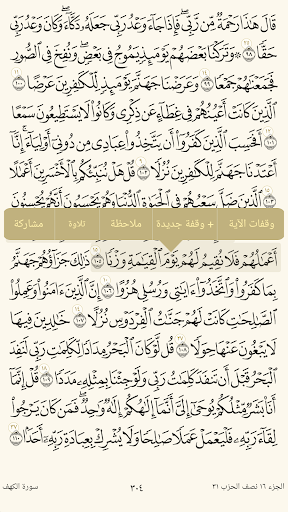 قَالَ هَٰذَا رَحْمَةٌ مِّن رَّبِّى فَإِذَا جَآءَ وَعْدُ رَبِّى جَعَلَهُۥ دَكَّآءَ وَكَانَ وَعْدُ رَبِّى
حَقًّا ٩٨ وَتَرَكْنَا بَعْضَهُمْ يَوْمَئِذٍ يَمُوجُ فِى بَعْضٍ وَنُفِخَ فِى ٱلصُّورِ
فَجَمَعْنَٰهُمْ جَمْعًا ٩٩ وَعَرَضْنَا جَهَنَّمَ يَوْمَئِذٍ لِّلْكَٰفِرِينَ عَرْضًا ١٠٠
ٱلَّذِينَ كَانَتْ أَعْيُنُهُمْ فِى غِطَآءٍ عَن ذِكْرِى وَكَانُوا۟ لَا يَسْتَطِيعُونَ سَمْعًا
١٠١ أَفَحَسِبَ ٱلَّذِينَ كَفَرُوٓا۟ أَن يَتَّخِذُوا۟ عِبَادِى مِن دُونِىٓ أَوْلِيَآءَ إِنَّآ
أَعْتَدْنَا جَهَنَّمَ لِلْكَٰفِرِينَ نُزُلًا ١٠٢ قُلْ هَلْ نُنَبِّئُكُم بِٱلْأَخْسَرِينَ أَعْمَٰلًا
١٠٣ ٱلَّذِينَ ضَلَّ سَعْيُهُمْ فِى ٱلْحَيَوٰةِ ٱلدُّنْيَا وَهُمْ يَحْسَبُونَ أَنَّهُمْ يُحْسِنُونَ
وقفات الآية + وقفة جديدة ملاحظة تلاوة مشاركة
أَعْمَٰلُهُمْ فَلَا نُقِيمُ لَهُمْ يَوْمَ ٱلْقِيَٰمَةِ وَزْنًا ١٠٥ ذَٰلِكَ جَزَآؤُهُمْ جَهَنَّمُ
بِمَا كَفَرُوا۟ وَٱتَّخَذُوٓا۟ ءَايَٰتِى وَرُسُلِى هُزُوًا ١٠٦ إِنَّ ٱلَّذِينَ ءَامَنُوا۟ وَعَمِلُوا۟
ٱلصَّٰلِحَٰتِ كَانَتْ لَهُمْ جَنَّٰتُ ٱلْفِرْدَوْسِ نُزُلًا ١٠٧ خَٰلِدِينَ فِيهَا
لَا يَبْغُونَ عَنْهَا حِوَلًا ١٠٨ قُل لَّوْ كَانَ ٱلْبَحْرُ مِدَادًا لِّكَلِمَٰتِ رَبِّى لَنَفِدَ
ٱلْبَحْرُ قَبْلَ أَن تَنفَدَ كَلِمَٰتُ رَبِّى وَلَوْ جِئْنَا بِمِثْلِهِۦ مَدَدًا ١٠٩ قُلْ إِنَّمَآ
أَنَا۠ بَشَرٌ مِّثْلُكُمْ يُوحَىٰٓ إِلَىَّ أَنَّمَآ إِلَٰهُكُمْ إِلَٰهٌ وَٰحِدٌ فَمَن كَانَ يَرْجُوا۟
لِقَآءَ رَبِّهِۦ فَلْيَعْمَلْ عَمَلًا صَٰلِحًا وَلَا يُشْرِكْ بِعِبَادَةِ رَبِّهِۦٓ أَحَدًۢا ١١٠
الجزء ١٦ نصف الحزب ٣١ ٣٠٤ سورة الكهف